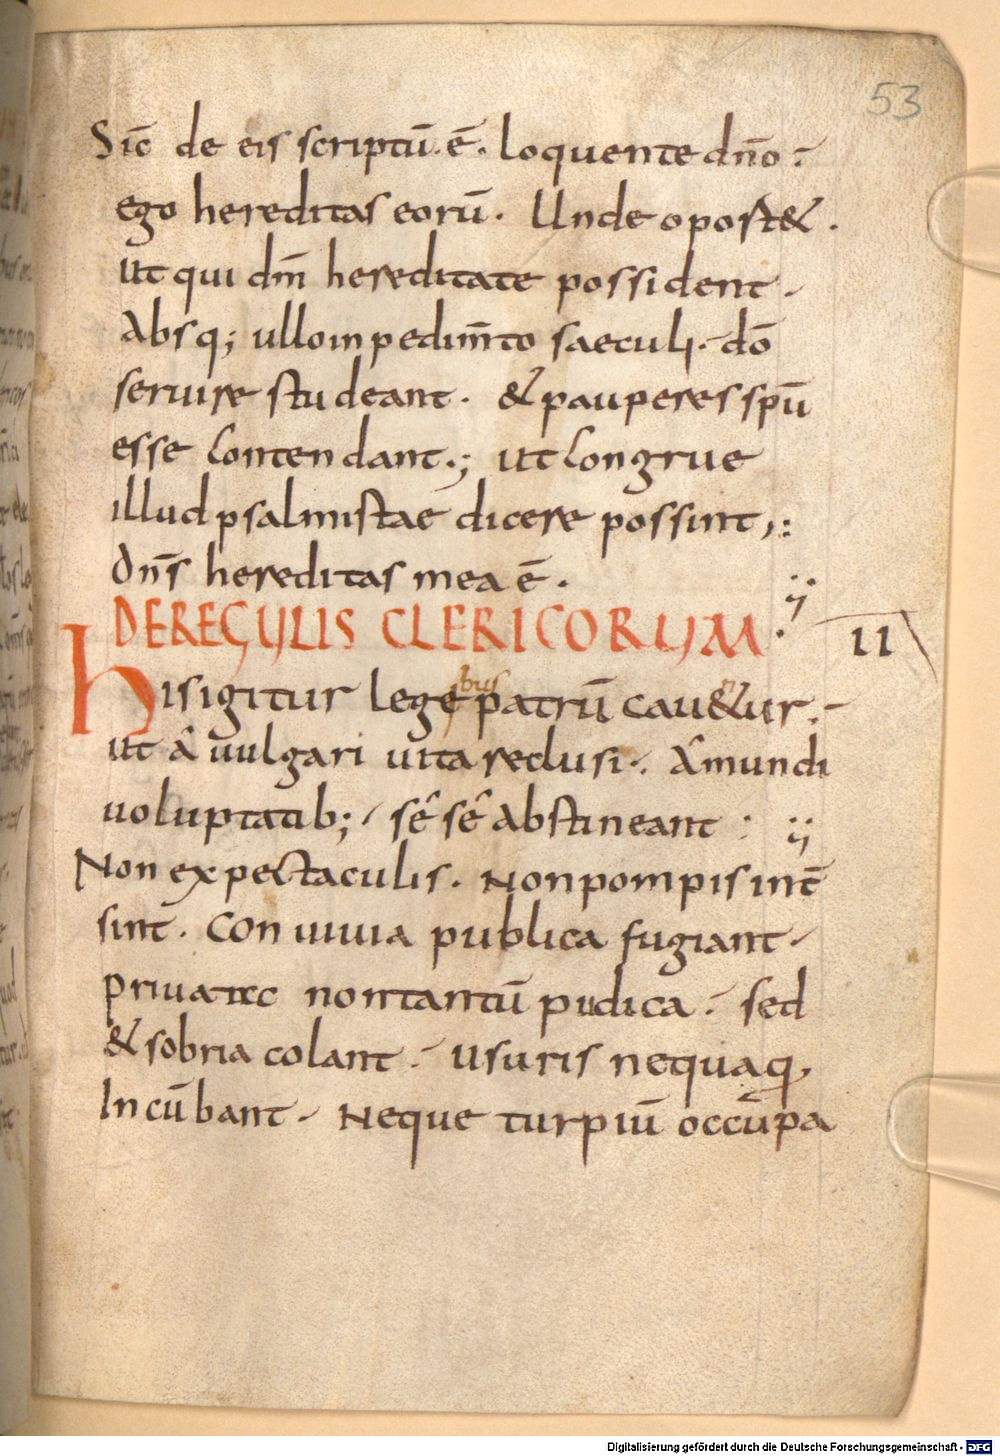 53
Sic̄ de eis scriptū. ē. loquente dn̄o :
ego hereditas eorū. Unde opost& .
ut qui dn̄i hereditate possident .
Absq; ullo inpedim̄to saeculi . dō
seruire studeant . & pauperes spū
esse contendant .; ut congrue
illud psalmistae dicere possint ,:
Dn̄s hereditas mea ē .
DE REGULIS CLERICORUM . II
His igitur lege bus patrū cau&ur .
ut a uulgari uita reclusi . A mundi
uoluptatib; sē sē abstineant :
Non expectaculis . Non pompis int̄
sint . Conuiuia publica fugiant .
priuatec non tantū pudica . sed
& sobria colant . Usuris nequaq,
Incūbant . Neque turpiū occūpa
Digitalisierung gefördert durch die Deutsche Forschungsgemeinschaft - DFG